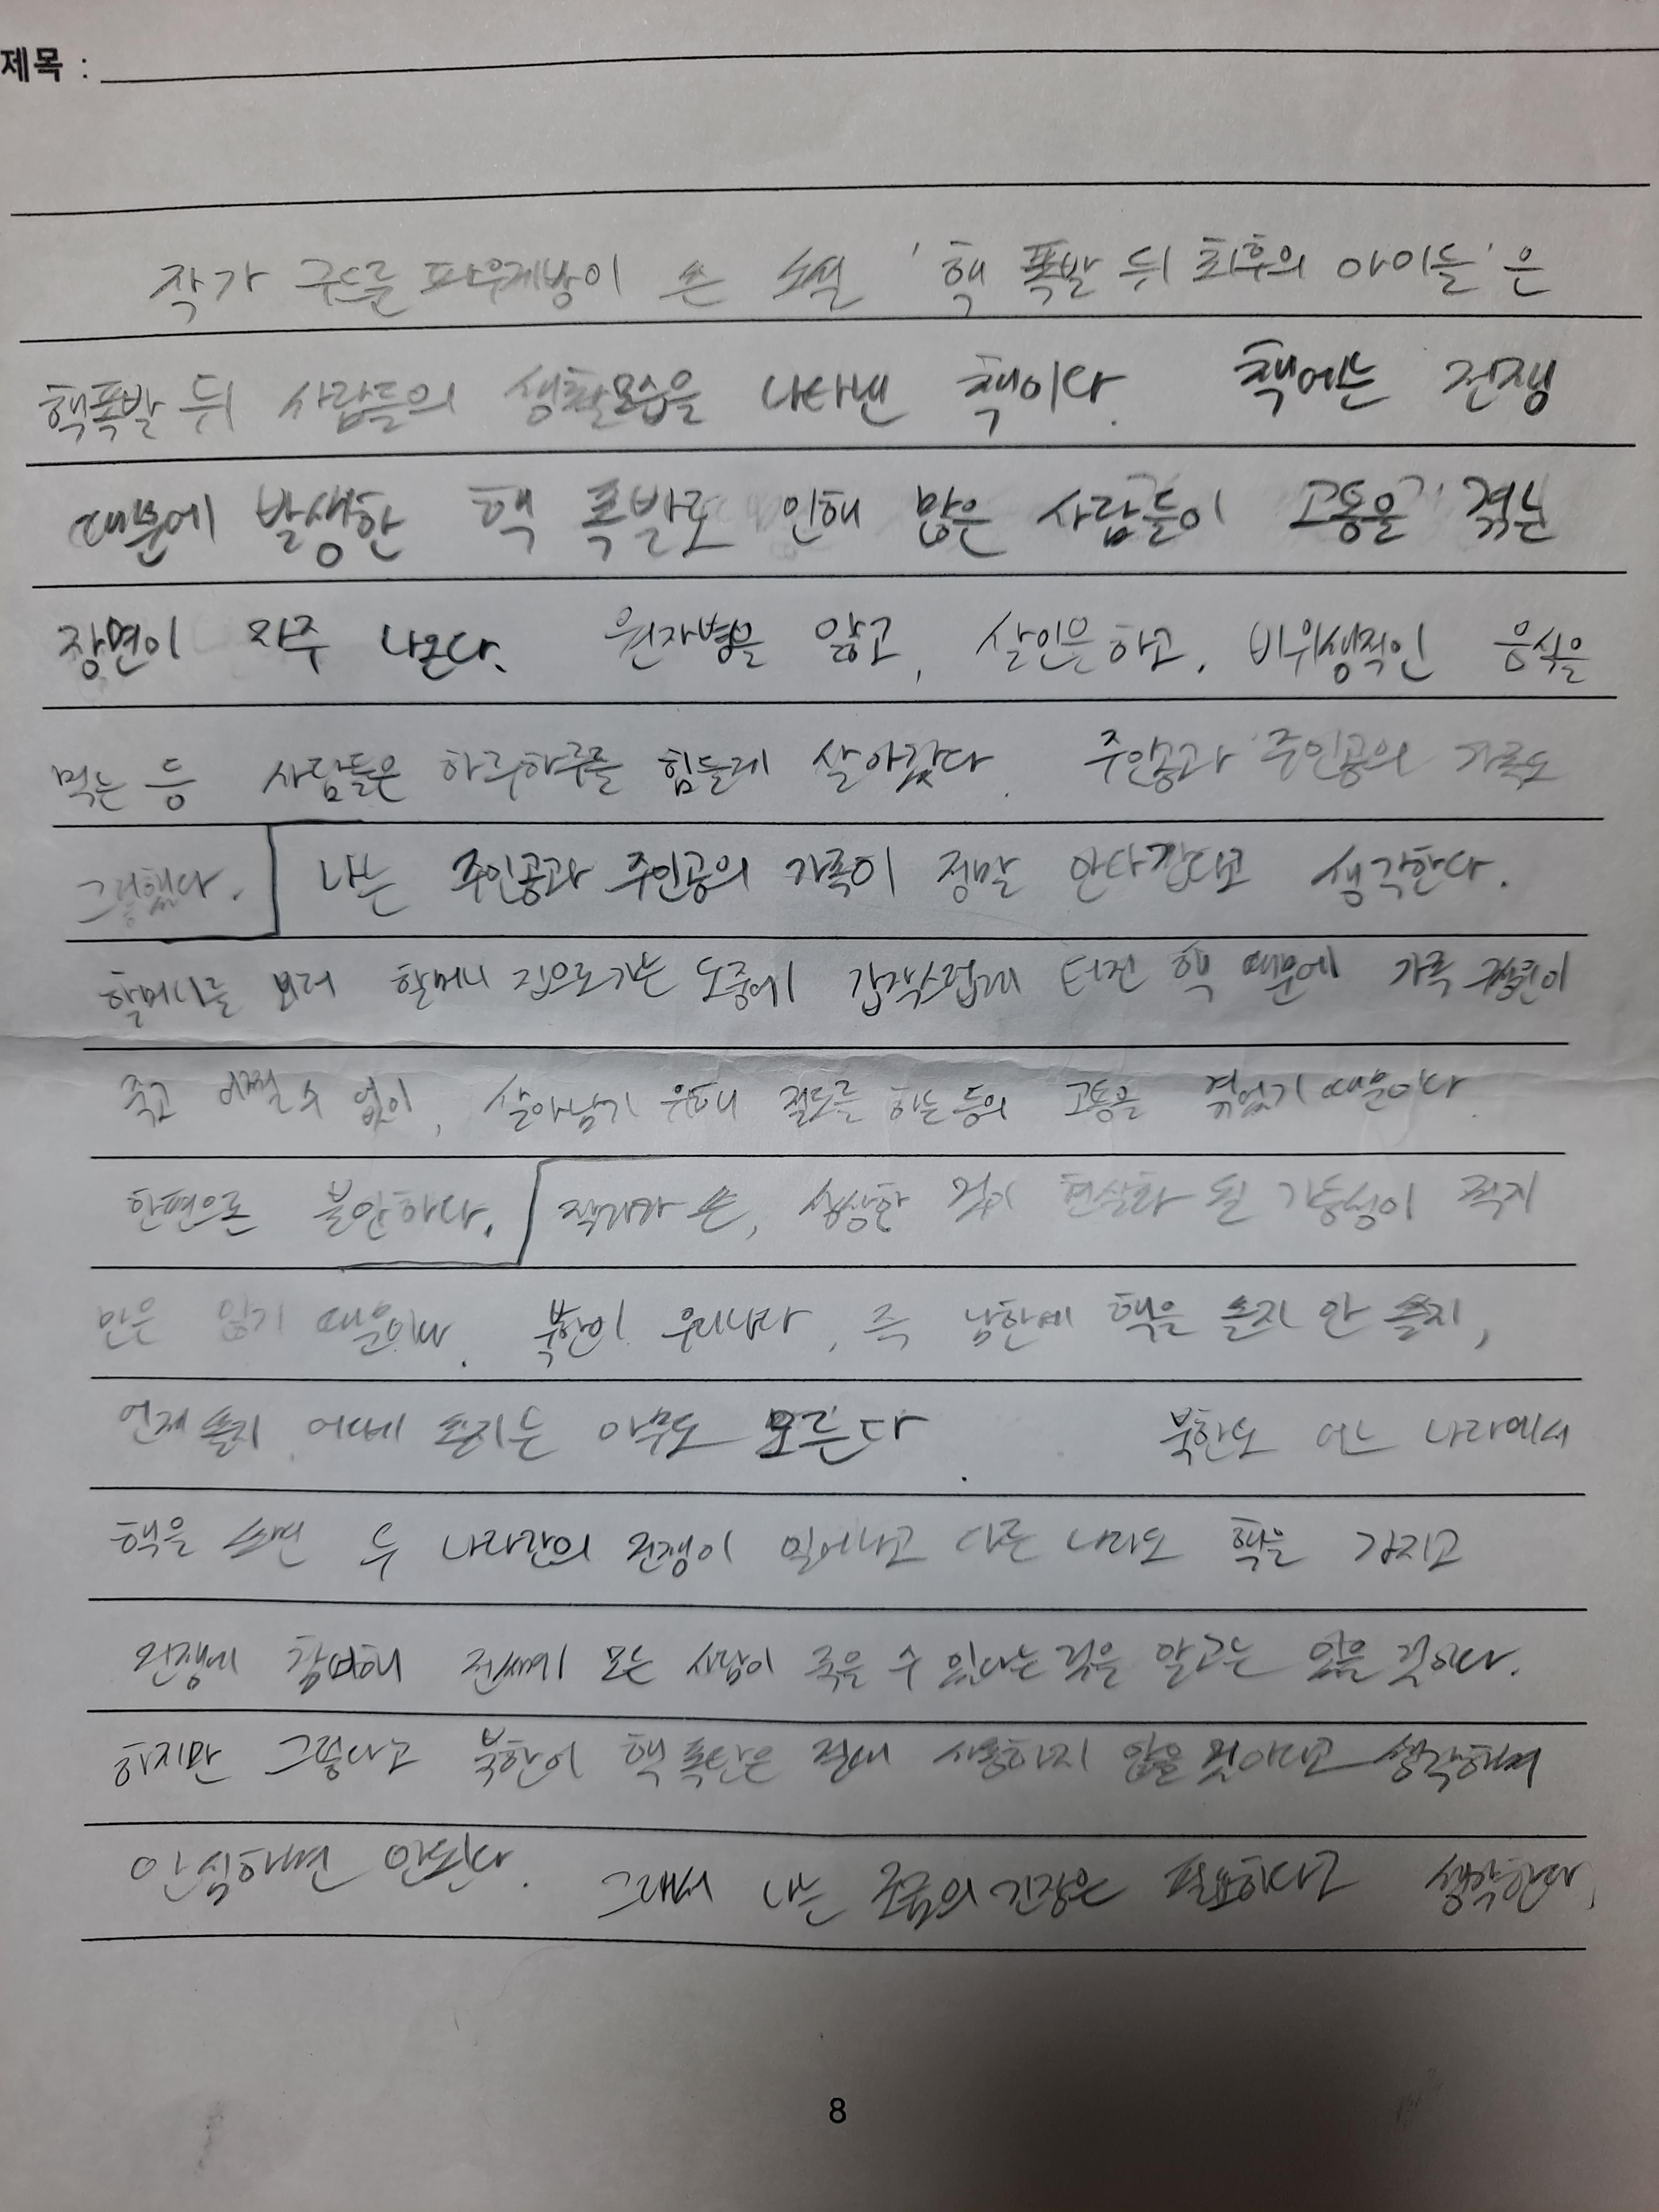 제목 :
작가 구드룬 파우제방이 쓴 소설 '핵 폭발 뒤 최후의 아이들'은
핵폭발 뒤 사람들의 생활모습을 나타낸 책이다. 책에는 전쟁
때문에 발생한 핵 폭발로 인해 많은 사람들이 고통을 겪는
장면이 자주 나온다. 원자병을 앓고, 살인을 하고, 비위생적인 음식을
먹는 등 사람들은 하루하루를 힘들게 살아갔다. 주인공과 주인공의 가족도
그랬다. 나는 주인공과 주인공의 가족이 정말 안타깝다고 생각한다.
할머니를 보러 할머니 집으로 가는 도중에 갑작스럽게 터진 핵 때문에 가족 절반이
죽고 어쩔 수 없이, 살아남기 위해 절도를 하는 등의 고통을 겪었기 때문이다.
한편으론 불안하다. 작가가 쓴, 상상한 것이 현실화 될 가능성이 적지
만은 않기 때문이다. 북한이 우리나라, 즉 남한에 핵을 쏠지 안 쏠지,
언제 쏠지 어디에 쏠지는 아무도 모른다. 북한도 어느 나라에서
핵을 쓰면 두 나라간의 전쟁이 일어나고 다른 나라도 핵을 가지고
전쟁에 참여해 전세계 모든 사람이 죽을 수 있다는 것을 알고는 있을 것이다.
하지만 그렇다고 북한이 핵 폭탄은 절대 사용하지 않을 것이라고 생각하며
안심하면 안된다. 그래서 나는 조금의 긴장은 필요하다고 생각한다.
8